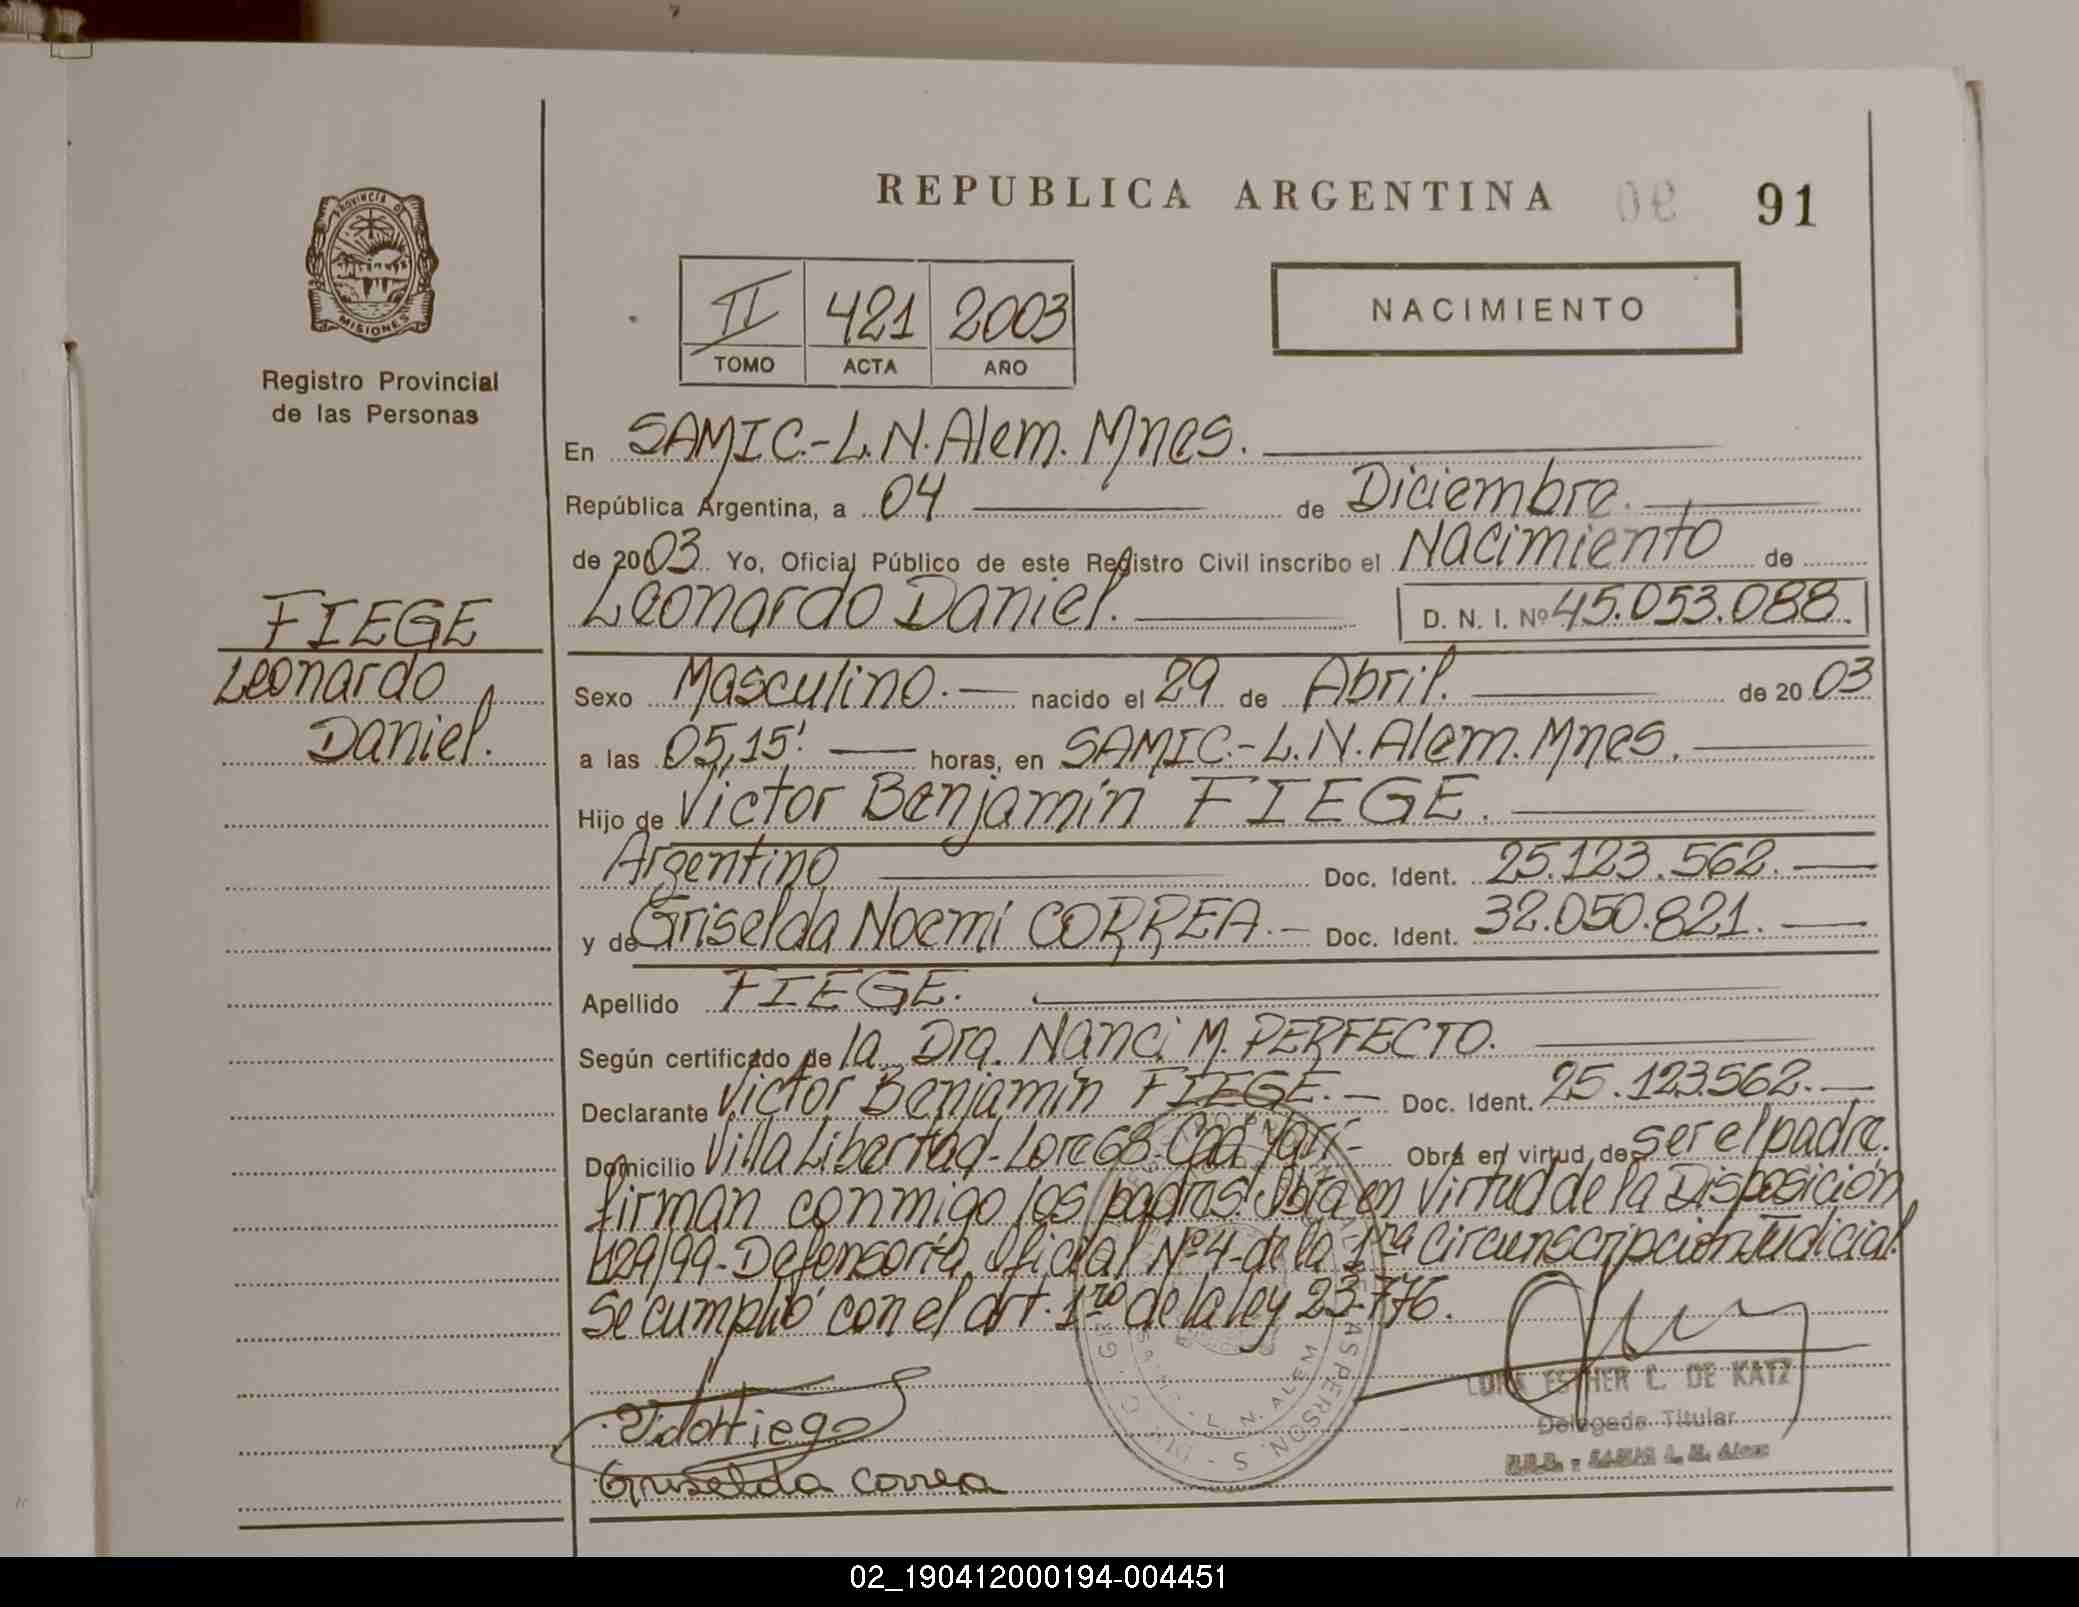 REPUBLICA ARGENTINA 91
PROVINCIA DE
MISIONES
Registro Provincial
de las Personas
II 421 2003
TOMO ACTA AÑO
NACIMIENTO
En SAMIC.-L.N.Alem.Mnes.
República Argentina, a 04 de Diciembre.
de 2003 Yo, Oficial Público de este Registro Civil inscribo el Nacimiento de
Leonardo Daniel. D. N. I. Nº 45.053.088.
FIEGE
Leonardo
Daniel.
Sexo Masculino. nacido el 29 de Abril. de 2003
a las 05,15' horas, en SAMIC.-L.N.Alem.Mnes.
Hijo de Victor Benjamín FIEGE.
Argentino Doc. Ident. 25.123.562.
y de Griselda Noemí CORREA.- Doc. Ident. 32.050.821.
Apellido FIEGE.
Según certificado de la Dra. Nanci M. PERFECTO.
Declarante Victor Benjamín FIEGE.- Doc. Ident. 25.123.562.-
Domicilio Villa Libertad-Lote 68- Obra en virtud de ser el padre.
firman conmigo los padres. Obra en virtud de la Disposición
429/99-Defensoría Oficial Nº4-de la 1ra Circunscripción Judicial.
Se cumplió con el art. 1ro de la ley 23.776.
Griselda Correa
ESTHER C. DE KATZ
Delegada Titular
L. N. Alem
02_190412000194-004451